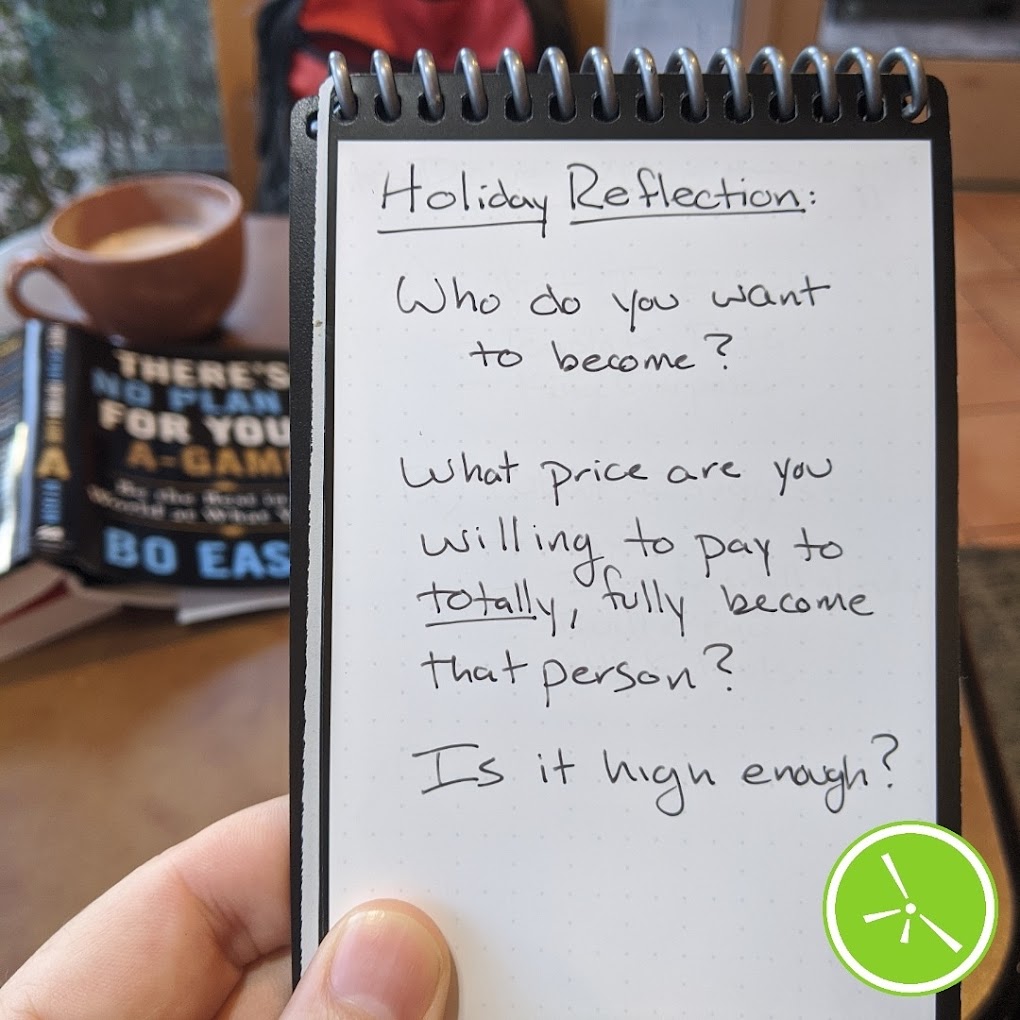 Holiday Reflection:
Who do you want
to become?
What price are you
willing to pay to
totally, fully become
that person?
Is it high enough?
THERE'S
NO PLAN
FOR YOU
A-GAM
Be the Best in
World at What
BO EAS
A